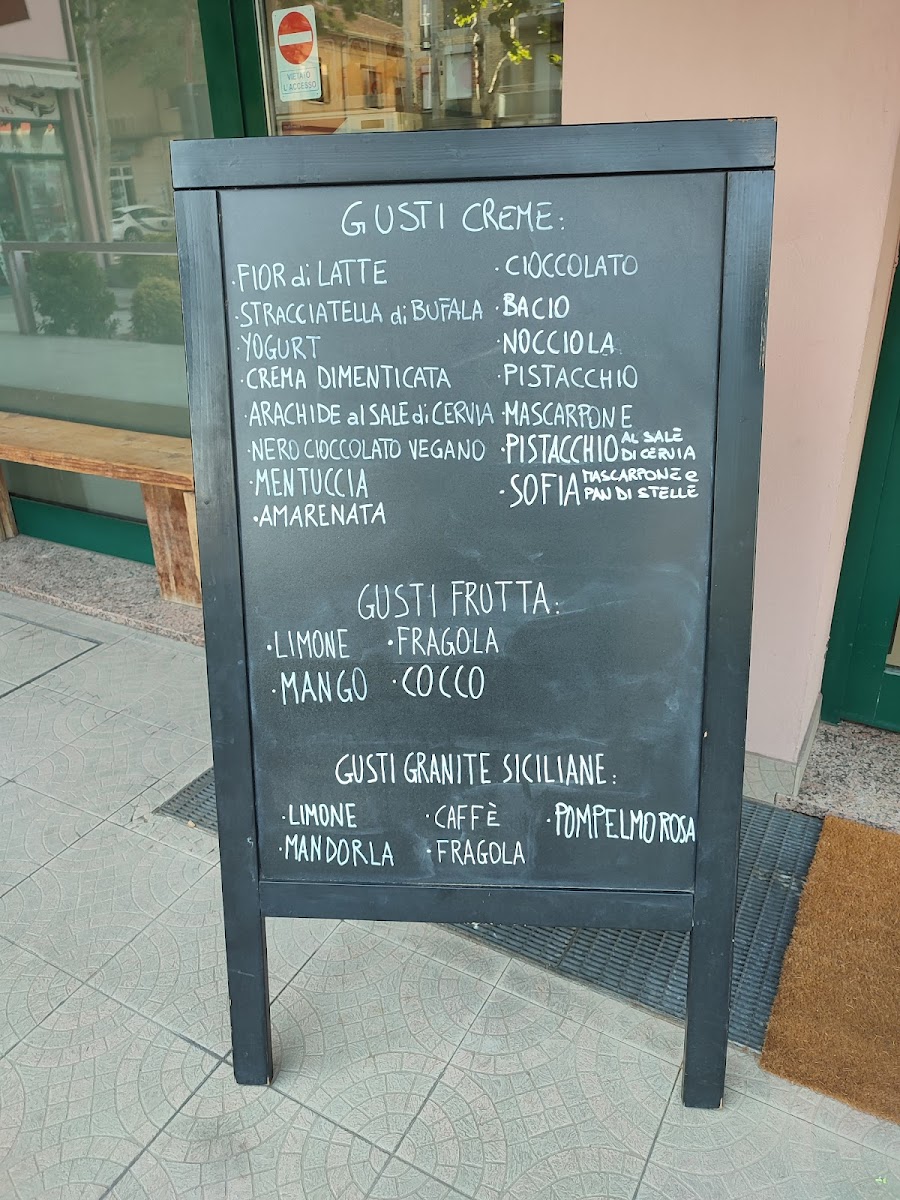 VIETATO
L'ACCESSO
GUSTI CREME:
·FIOR di LATTE
·STRACCIATELLA di BUFALA
·YOGURT
·CREMA DIMENTICATA
·ARACHIDE al SALE di CERVIA
·NERO CIOCCOLATO VEGANO
·MENTUCCIA
·AMARENATA
·CIOCCOLATO
·BACIO
·NOCCIOLA
·PISTACCHIO
·MASCARPONE
·PISTACCHIO AL SALE
DI CERVIA
·SOFIA MASCARPONE e
PAN DI STELLE
GUSTI FRUTTA:
·LIMONE ·FRAGOLA
·MANGO ·COCCO
GUSTI GRANITE SICILIANE:
·LIMONE ·CAFFÈ ·POMPELMO ROSA
·MANDORLA ·FRAGOLA